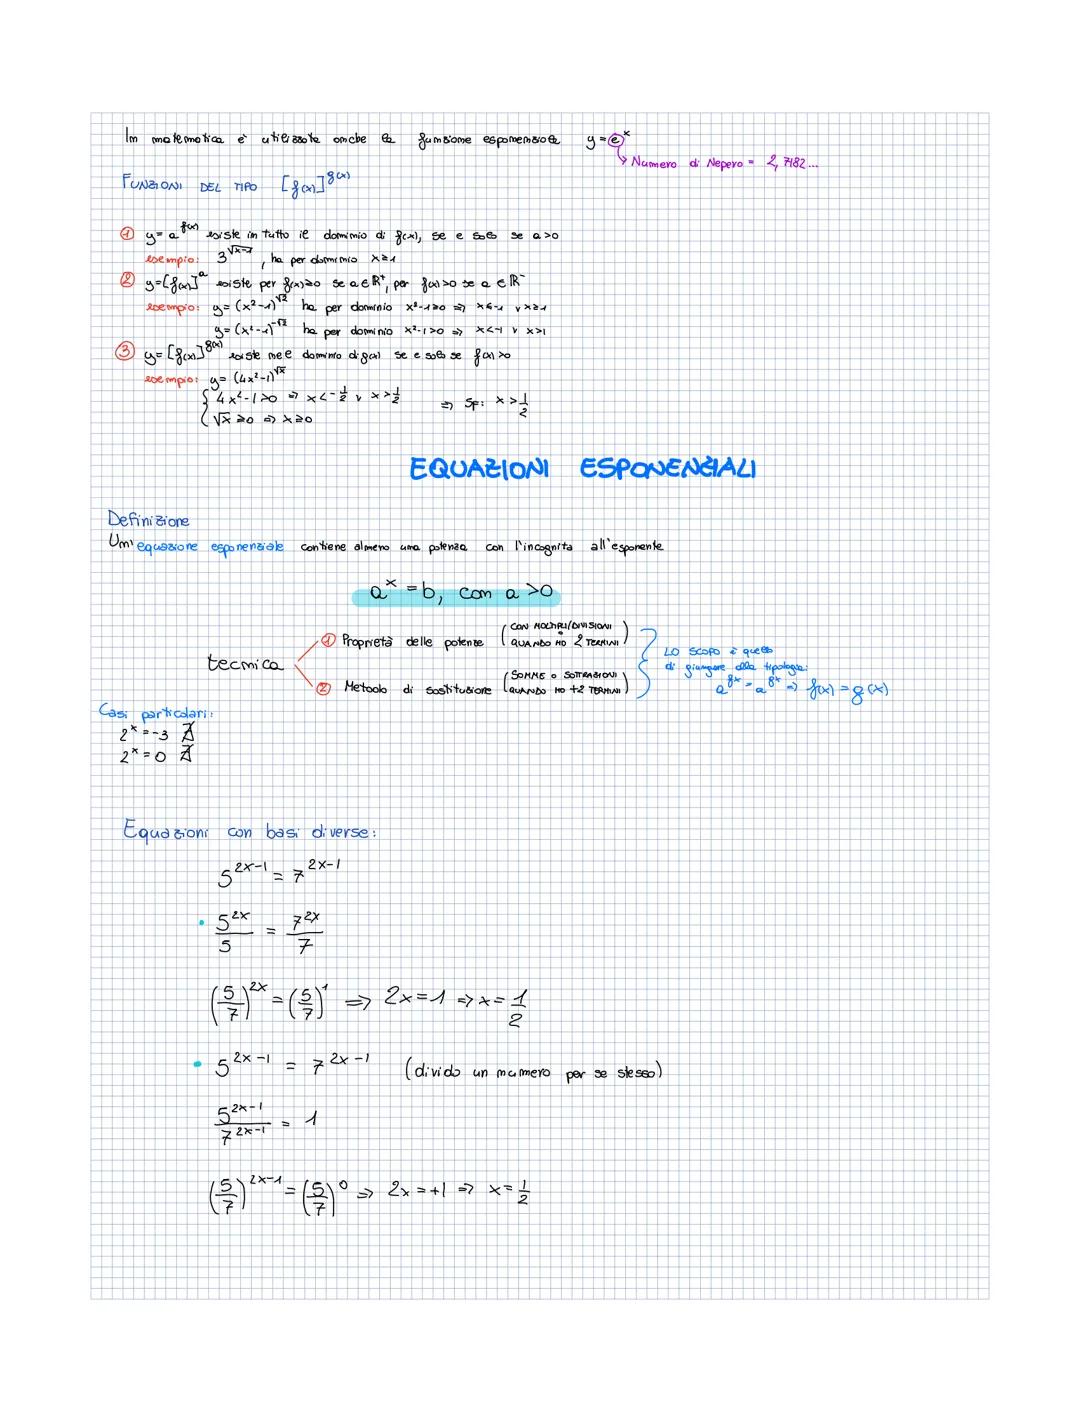 In matematica è utilizzata anche la funzione esponenziale y = e^x
→ Numero di Nepero = 2,7182...
FUNZIONI DEL TIPO [f(x)]^g(x)
① y = a^f(x) esiste in tutto il dominio di f(x), se e solo se a>0
esempio: 3^√(x-1), ha per dominio x≥1
② y=[f(x)]^a esiste per f(x)≥0 se a∈ℝ⁺, per f(x)>0 se a∈ℝ⁻
esempio: y=(x²-1)^√2 ha per dominio x²-1≥0 ⇒ x≤-1 v x≥1
y=(x²-1)^-√2 ha per dominio x²-1>0 ⇒ x<-1 v x>1
③ y=[f(x)]^g(x) esiste nel dominio di g(x) se e solo se f(x)>0
esempio: y=(4x²-1)^√x
{ 4x²-1>0 ⇒ x<-1/2 v x>1/2
√x≥0 ⇒ x≥0 ⇒ Sf: x>1/2
EQUAZIONI ESPONENZIALI
Definizione
Un'equazione esponenziale contiene almeno una potenza con l'incognita all'esponente
a^x = b, con a>0
tecnica
① Proprietà delle potenze (CON MOLTIPLI/DIVISIONI o QUANDO HO 2 TERMINI)
② Metodo di sostituzione (SOMME o SOTTRAZIONI QUANDO HO +2 TERMINI)
LO SCOPO è quello
di giungere alla tipologia:
a^fx = a^gx ⇒ f(x) = g(x)
Casi particolari:
2^x = -3 ∄
2^x = 0 ∄
Equazioni con basi diverse:
5^(2x-1) = 7^(2x-1)
• 5^2x/5 = 7^2x/7
(5/7)^2x = (5/7)^1 ⇒ 2x=1 ⇒ x=1/2
• 5^(2x-1) = 7^(2x-1) (divido un numero per se stesso)
5^(2x-1)/7^(2x-1) = 1
(5/7)^(2x-1) = (5/7)^0 ⇒ 2x=+1 ⇒ x=1/2